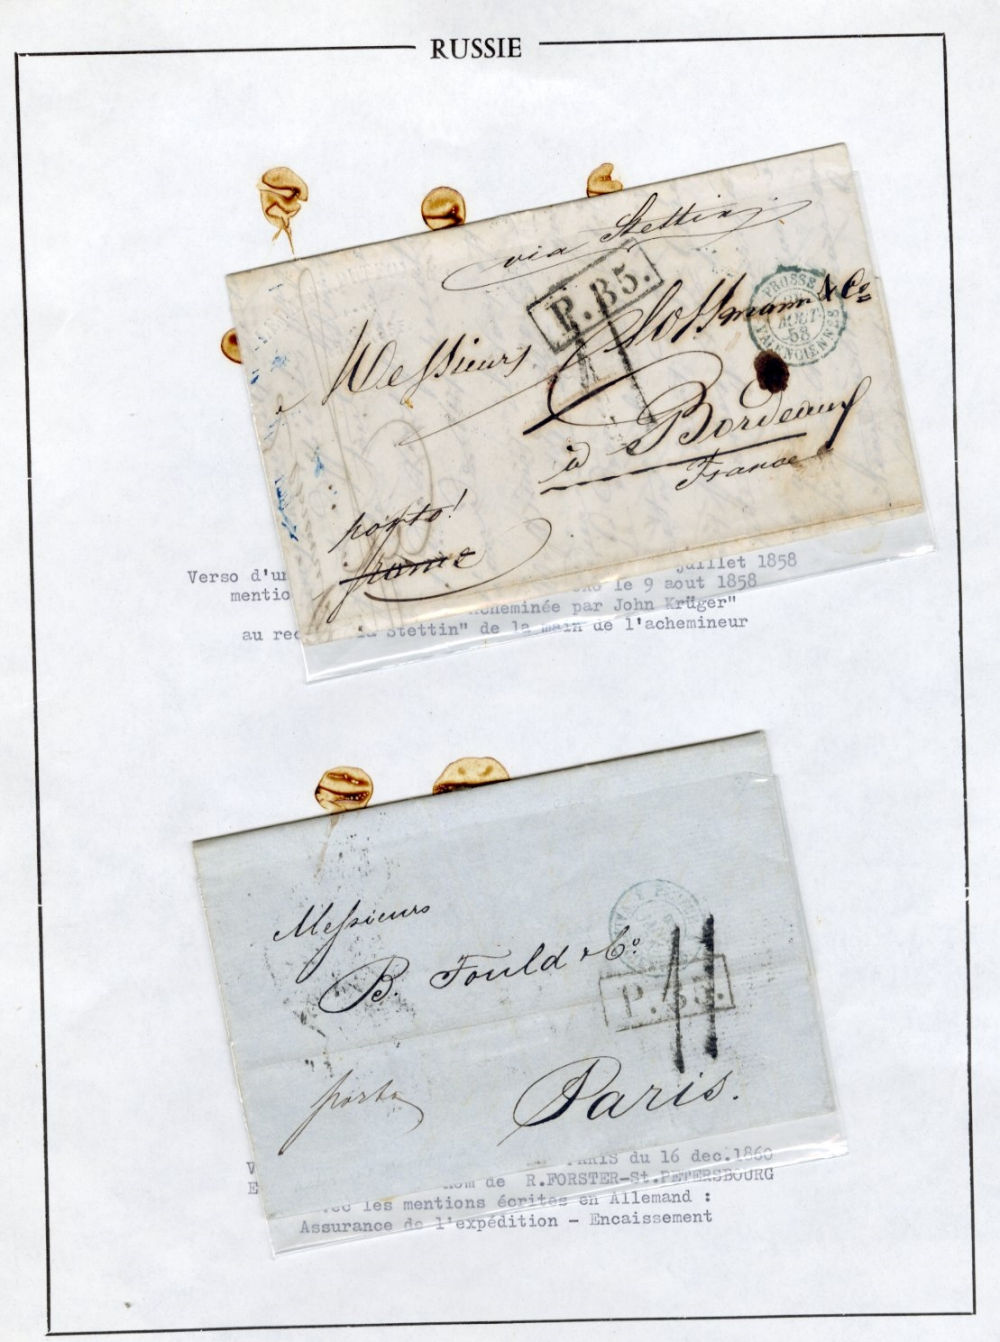 RUSSIE
via Stettin
P. B5.
PRUSSE
AOUT
58
VALENCIENNES
Messieurs Hoffmann & Co
11
à Bordeaux
France
porto!
franco
Verso d'un juillet 1858
mentio le 9 aout 1858
acheminée par John Krüger"
au rec Stettin" de la main de l'achemineur
Messieurs
B. Fould & Co.
P. B5.
11
porto
Paris.
V PARIS du 16 dec.1860
E nom de R.FORSTER-St.PETERSBOURG
les mentions écrites en Allemand :
Assurance de l'expédition - Encaissement